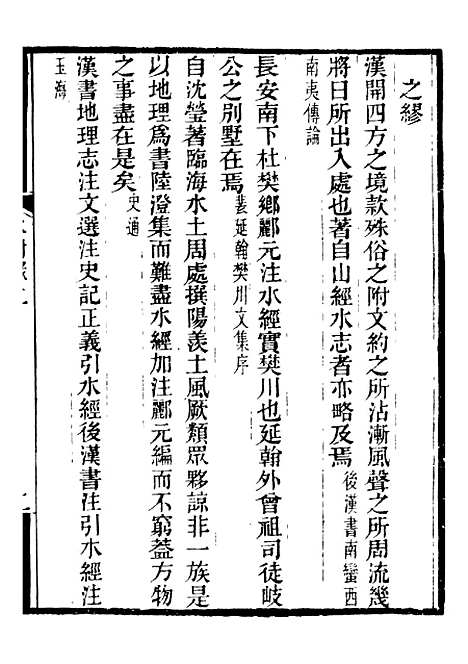 之繆
漢開四方之境款殊俗之附文約之所沾漸風聲之所周流幾
將日所出入處也著自山經水志者亦略及焉後漢書南蠻西
南夷傳論
長安南下杜樊鄉酈元注水經實樊川也延翰外曾祖司徒岐
公之別墅在焉裴延翰樊川文集序
自沈瑩著臨海水土周處撰陽羨土風厥類眾夥諒非一族是
以地理爲書陸澄集而難盡水經加注酈元編而不窮葢方物
之事盡在是矣史通
漢書地理志注文選注史記正義引水經後漢書注引水經注
玉海